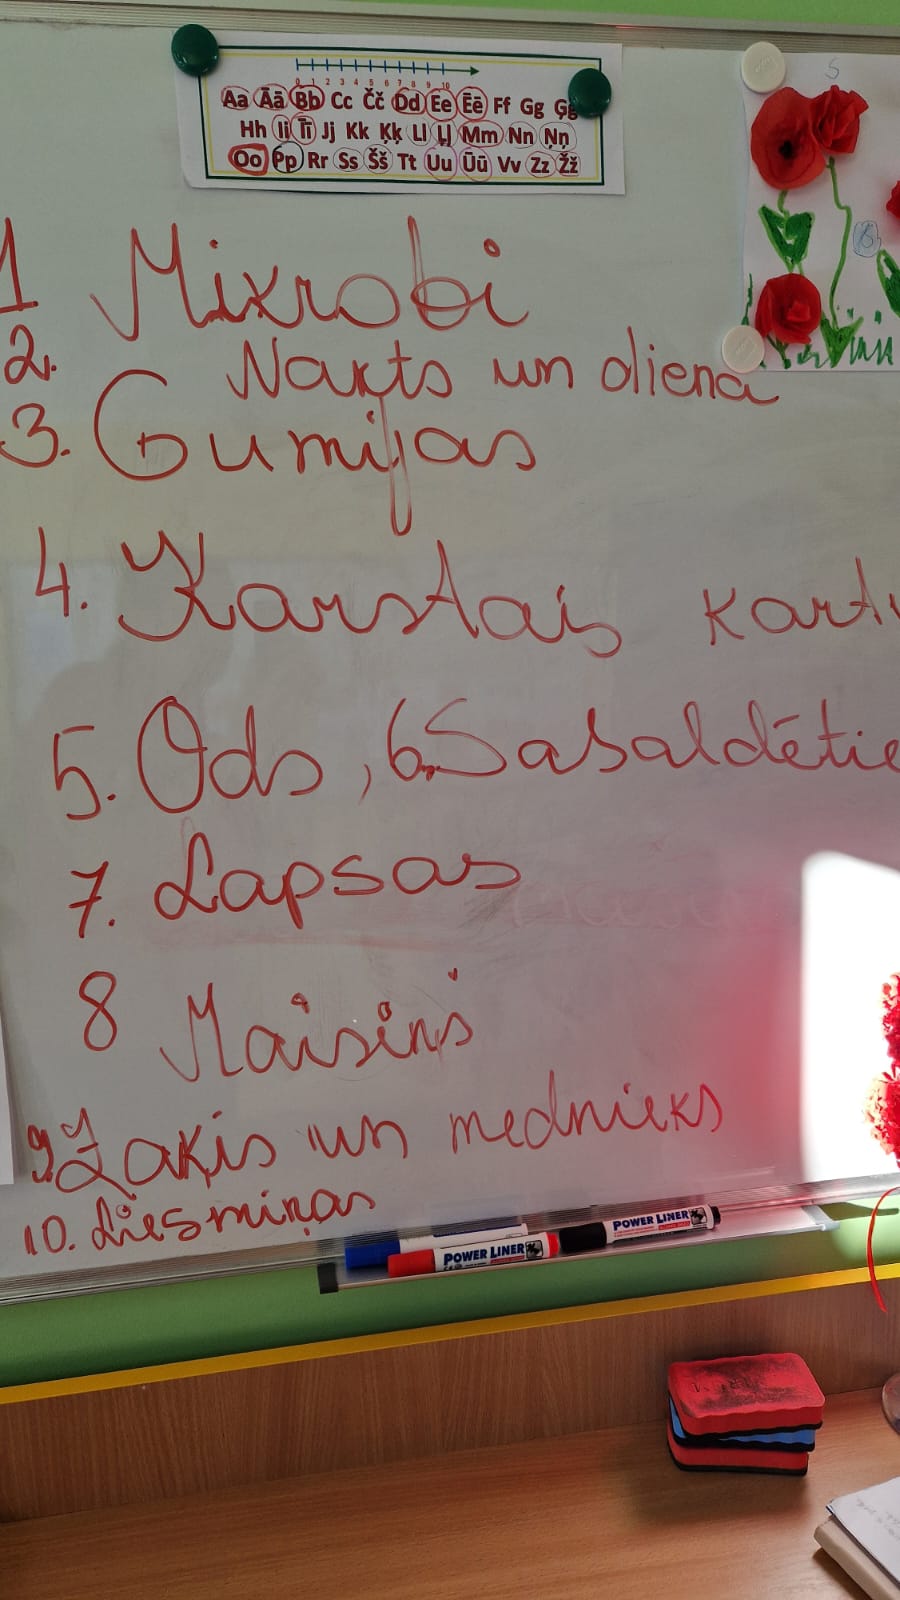 0 1 2 3 4 5 6 7 8 9 10
Aa Āā Bb Cc Čč Dd Ee Ēē Ff Gg Ģģ
Hh Ii Īī Jj Kk Ķķ Ll Ļļ Mm Nn Ņņ
Oo Pp Rr Ss Šš Tt Uu Ūū Vv Zz Žž
S
1 Mikrobi
2. Nakts un diena
3. Gumijas
4. Karstais kart
5. Ods, 6. Sasaldētie
7. Lapsas
8 Maisiņš
9. Zaķis un mednieks
10. Liesmiņas
POWER LINER
POWER LINER